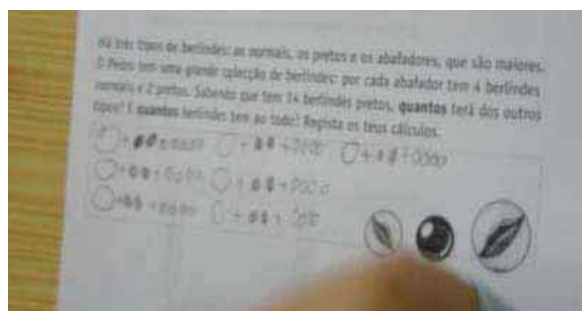 Há três tipos de berlindes: os normais, os pretos e os abafadores, que são maiores.
O Pedro tem uma grande colecção de berlindes: por cada abafador tem 4 berlindes
normais e 2 pretos. Sabendo que tem 14 berlindes pretos, quantos terá dos outros
tipos? E quantos berlindes tem ao todo? Regista os teus cálculos.